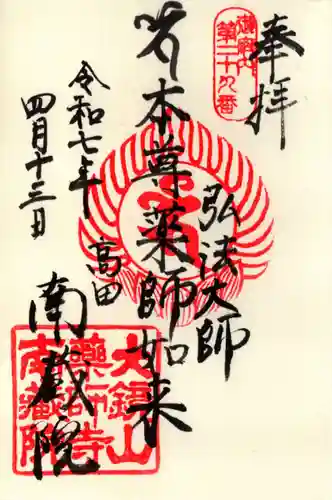 奉拝
御府内
第二十九番
弘法大師
本尊薬師如来
令和七年
四月十三日
高田
南蔵院
大鏡山
薬師寺
南蔵院